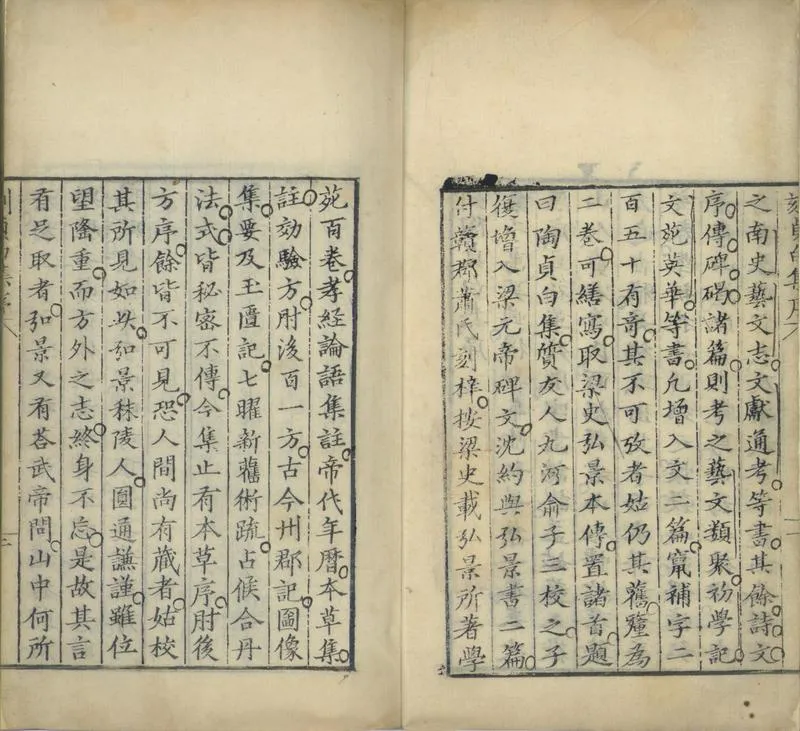 之南史藝文志文獻通考等書其餘詩文
序傳碑碣諸篇則考之藝文類聚初學記
文苑英華等書凡增入文二篇竄補字二
百五十有奇其不可攷者姑仍其舊釐為
二卷可繕寫取梁史弘景本傳置諸首題
曰陶貞白集質友人九河俞子三校之子
復增入梁元帝碑文沈約與弘景書二篇
付贛郡蕭氏刻梓按梁史載弘景所著學
苑百卷孝經論語集註帝代年曆本草集
註効驗方肘後百一方古今州郡記圖像
集要及玉匱記七曜新舊術疏占候合丹
法式皆秘密不傳今集止有本草序肘後
方序餘皆不可見恐人間尚有藏者姑校
其所見如此弘景秣陵人圓通謙謹雖位
望隆重而方外之志終身不忘是故其言
有足取者弘景又有荅武帝問山中何所